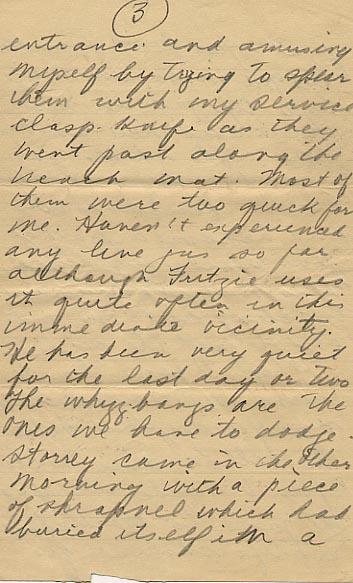 3
entrance and amusing
myself by trying to spear
them with my service
clasp-knife as they
went past along the
trench mat. Most of
them were too quick for
me. Haven't experienced
any live gas so far
although Fritzie uses
it quite often in this
immediate vicinity.
He has been very quiet
for the last day or two
The whizz-bangs are the
ones we have to dodge.
Storrey came in the other
morning with a piece
of shrapnel which had
buried itself in a